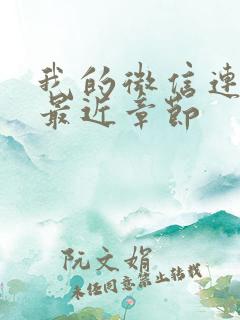 我的微信连
最近章节
阮文娟
未经同意禁止转载